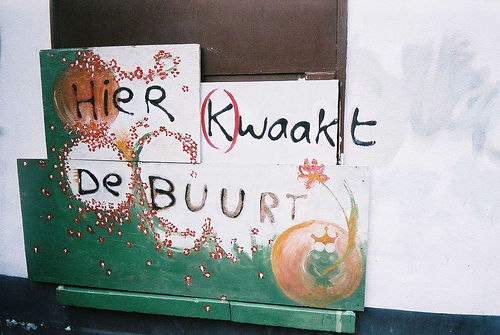 Hier (K)waakt
De BUURT